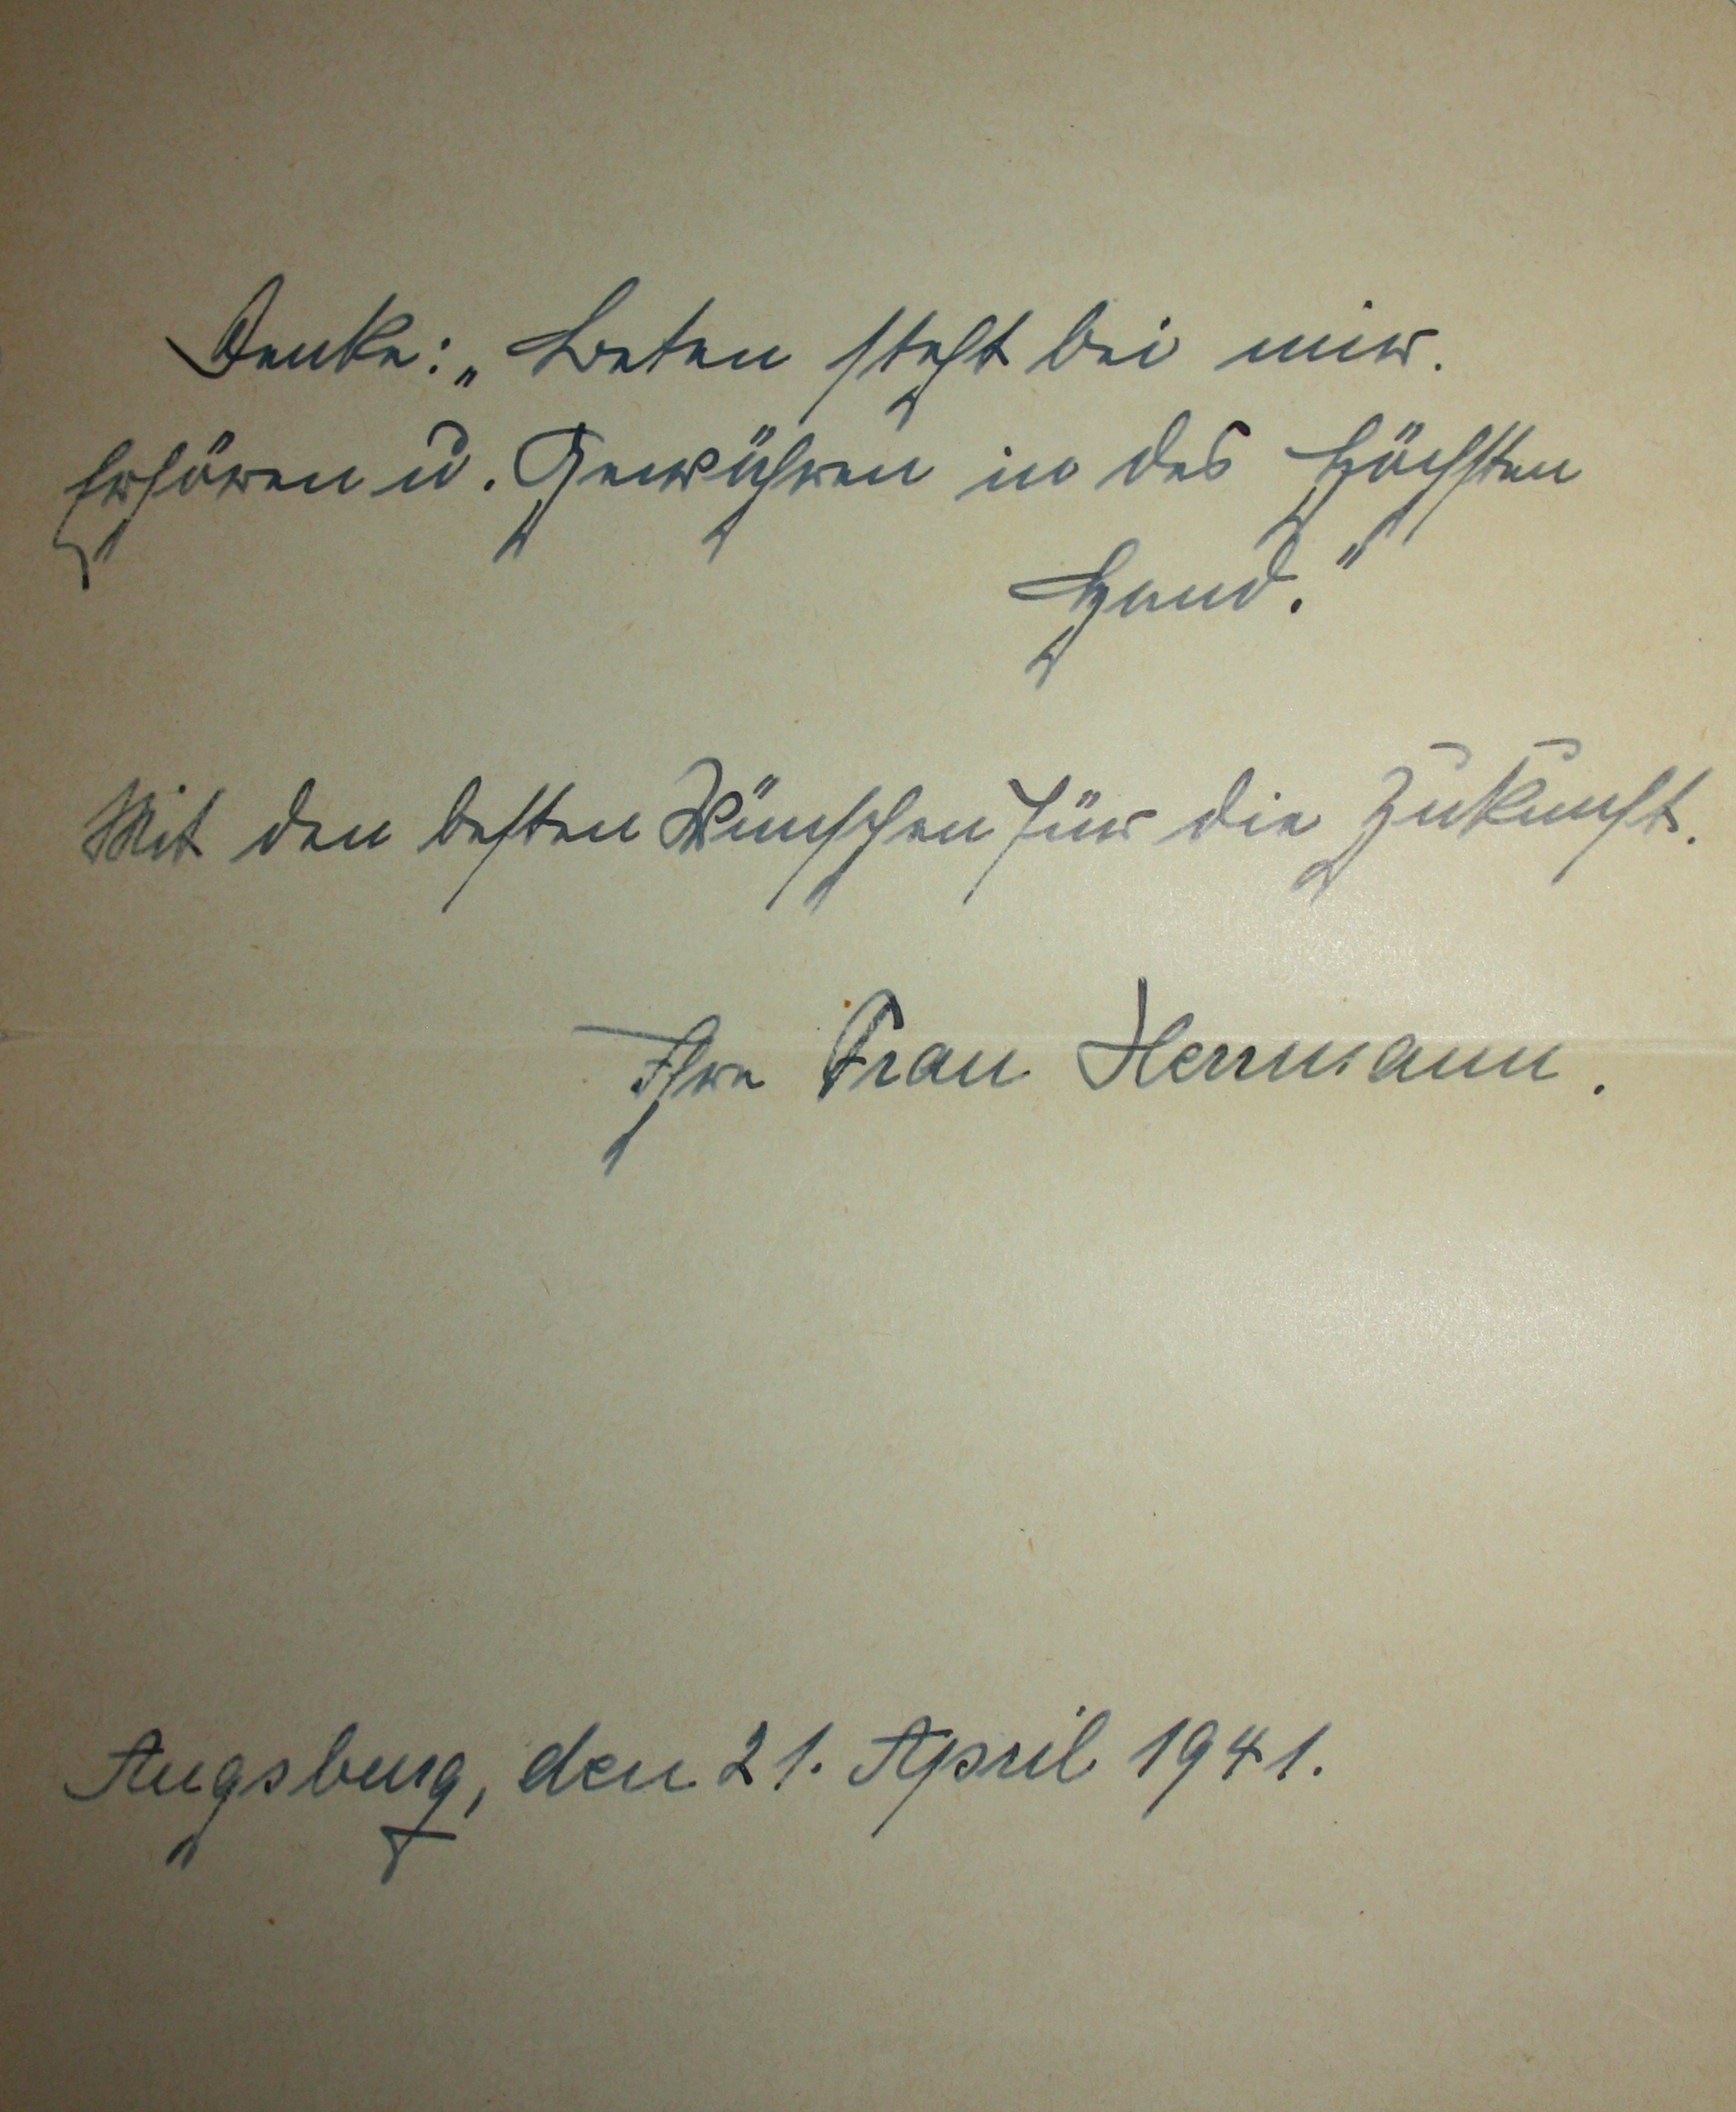 Denke: „Beten steht bei mir.
Erhören u. Gewähren in des Höchsten
Hand."
Mit den besten Wünschen für die Zukunft.
Ihre Frau Herrmann.
Augsburg, den 21. April 1941.